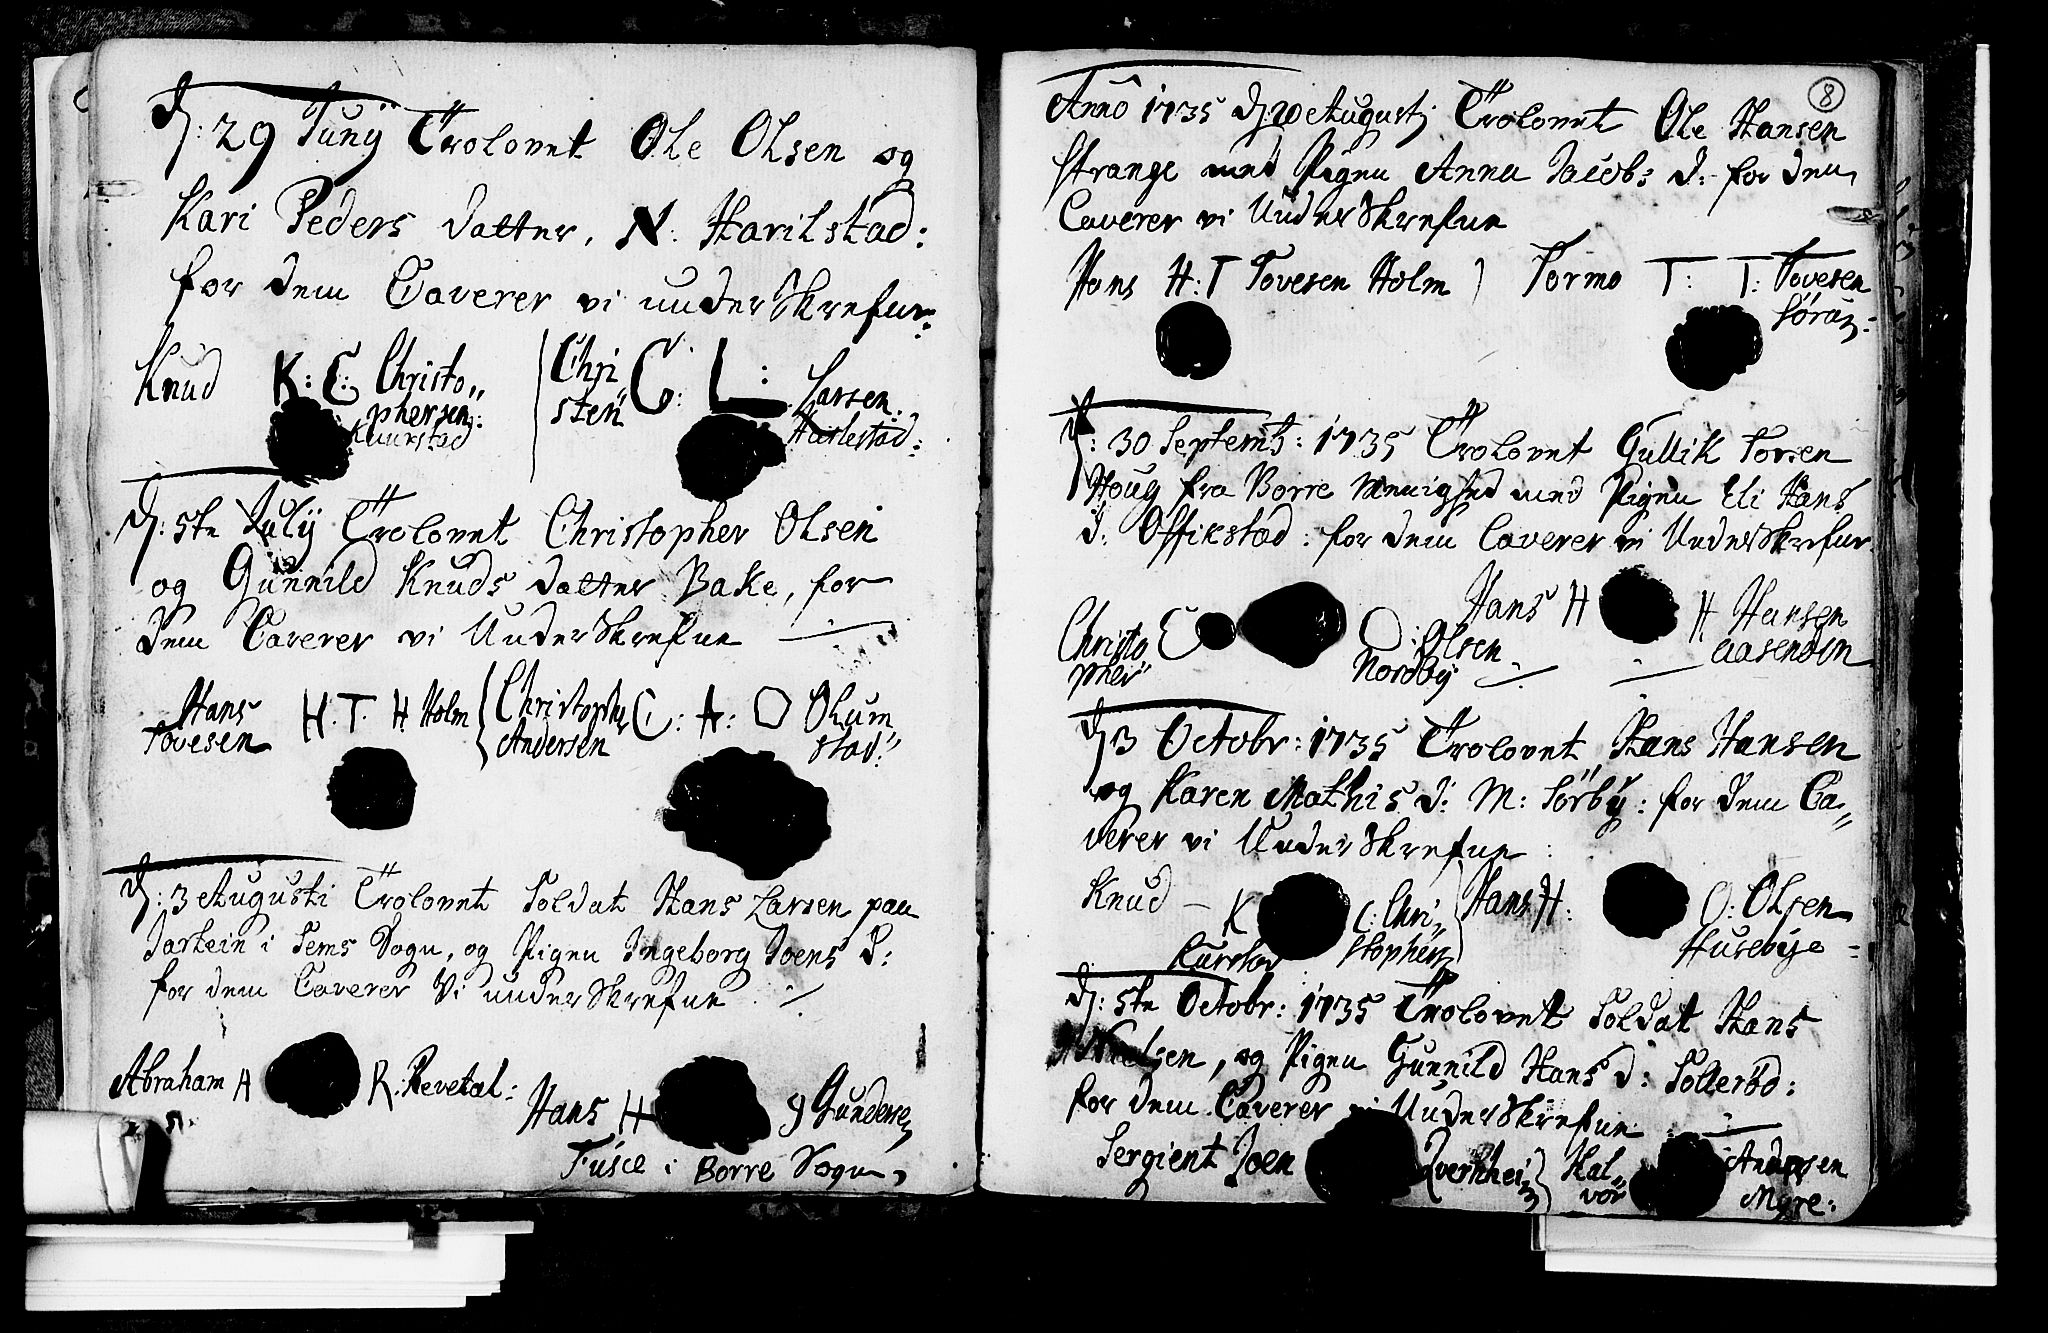 D: 29 Junÿ Trolovet Ole Olsen og
Kari Peders datter, N. Harilstad:
for dem Caverer vi underskrefne:
Knud K: C: Christo„
phersen: 
Kuurstad
Chri
sten„ C: L: Larsen.
Harlestad:
D: 5te Julÿ Trolovet Christopher Olsen
og Gunnild Knuds datter Bake, for
dem Caverer vi Underskrefne
Hans
Tovesen H. T. H. Holm
Christopher
Andersen C: A: O Olum
stad:„
D: 3 Augusti Trolovet Soldat Hans Larsen paa
Jarlein i Sems Sogn, og Pigen Ingeborg Joens D:
for dem Caverer Vi underskrefne
Abraham A R: Revetal:
Hans H G Gundersen
Fusce i Borre Sogn,
8
Anno 1735 D 20 Augustj Trolovet Ole Hansen
strange med Pigen Anna Jacobs D: for dem
Caverer vi Underskrefne
Hans H: T Tovesen Holm ) Tormo T: T: Tovesen
D: 30 Septemb: 1735 Trolovet Gullik Torsen
Houg fra Borre Menighed med Pigen Eli Hans
D: Offikstad: for dem Caverer vi Underskrefne
Christo
pher C O: Olsen
Nordby
Hans H H Hansen
Aasenden
D 3 Octobr: 1735 Trolovet Hans Hansen
og Karen Mathis D: M: Sørbÿ: for dem Ca„
verer vi Underskrefne:
Knud – K C: Chri„
Kurstad stophers
Hans H: O: Olsen
Husebye
D: 5te Octobr: 1735 Trolovet Soldat Hans
Nielsen, og Pigen Gunnild Hans D: Sollerød:
for dem Caverer vi Underskrefne
Sergient Joen Qvernhei
Hal„
vor Andersen
Myre: